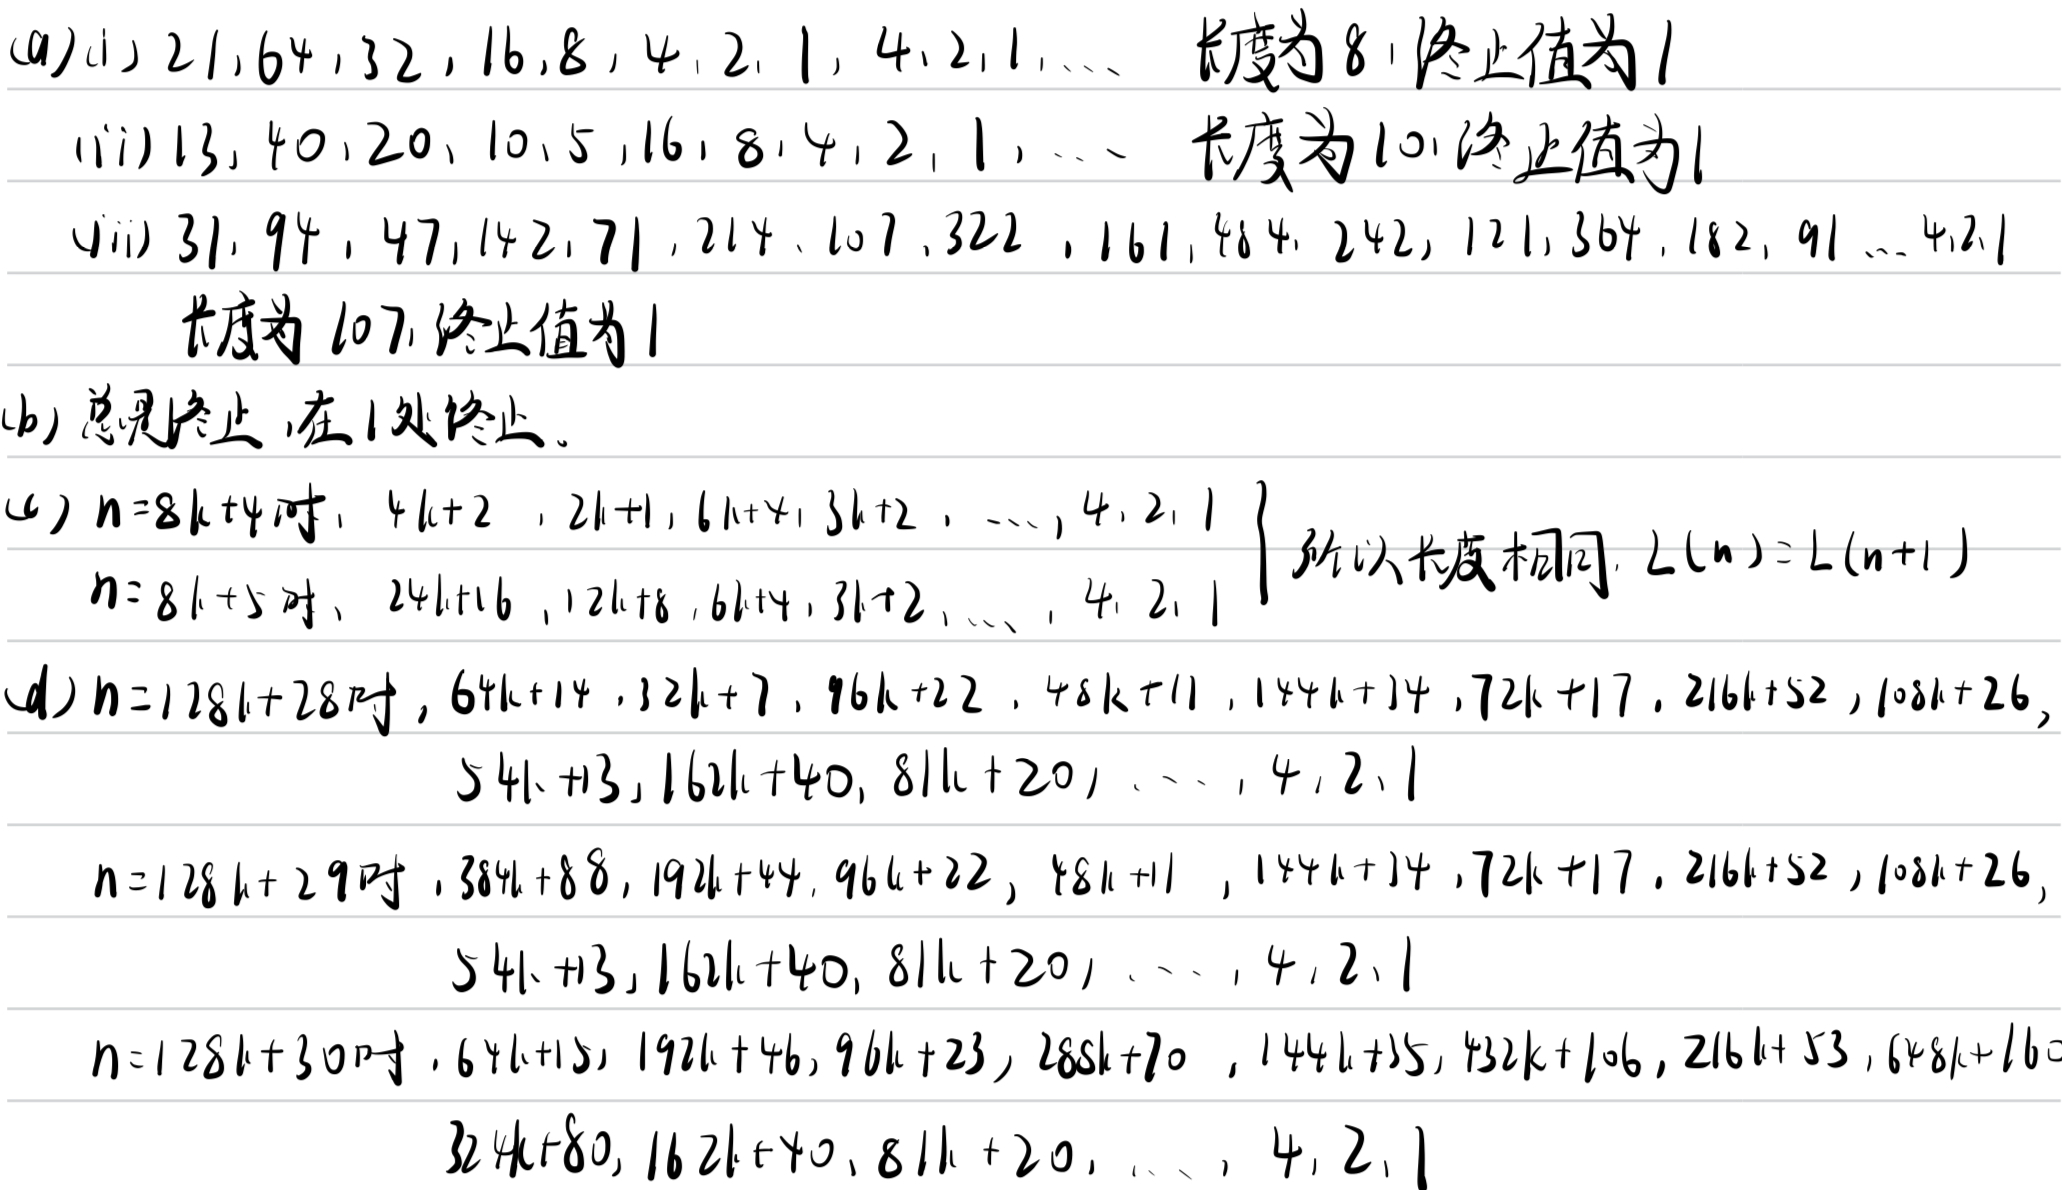 (a) (i) 21, 64, 32, 16, 8, 4, 2, 1, 4, 2, 1, ... 长度为8, 终止值为1
(ii) 13, 40, 20, 10, 5, 16, 8, 4, 2, 1, ... 长度为10, 终止值为1
(iii) 31, 94, 47, 142, 71, 214, 107, 322, 161, 484, 242, 121, 364, 182, 91 ... 4, 2, 1
长度为107, 终止值为1
(b) 总是终止,在1处终止。
(c) n=8k+4时, 4k+2, 2k+1, 6k+4, 3k+2, ..., 4, 2, 1
n=8k+5时, 24k+16, 12k+8, 6k+4, 3k+2, ..., 4, 2, 1
所以长度相同, L(n)=L(n+1)
(d) n=128k+28时, 64k+14, 32k+7, 96k+22, 48k+11, 144k+34, 72k+17, 216k+52, 108k+26,
54k+13, 162k+40, 81k+20, ..., 4, 2, 1
n=128k+29时, 384k+88, 192k+44, 96k+22, 48k+11, 144k+34, 72k+17, 216k+52, 108k+26,
54k+13, 162k+40, 81k+20, ..., 4, 2, 1
n=128k+30时, 64k+15, 192k+46, 96k+23, 288k+70, 144k+35, 432k+106, 216k+53, 648k+160
324k+80, 162k+40, 81k+20, ..., 4, 2, 1